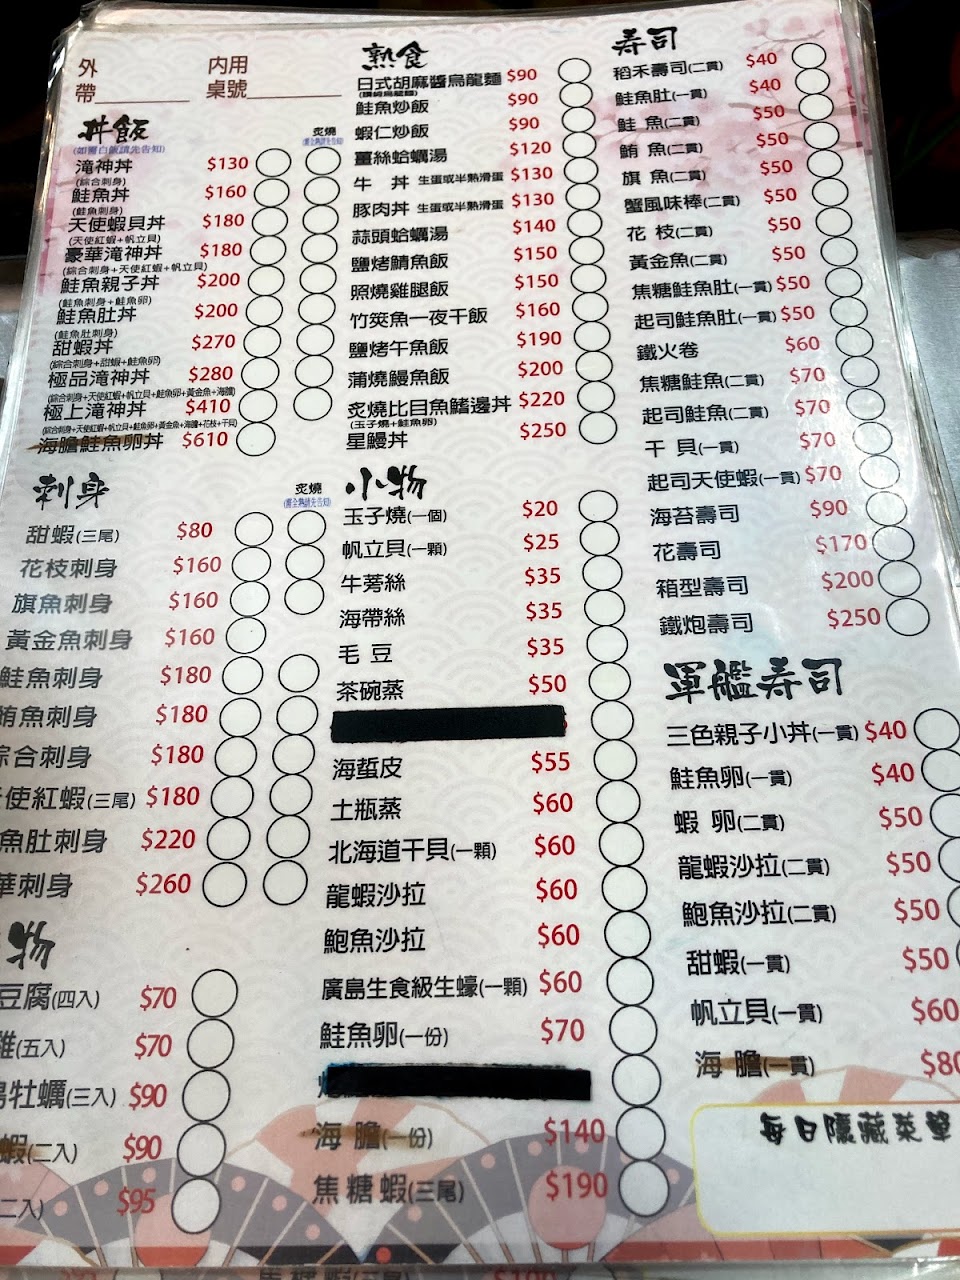 外帶
內用桌號
丼飯
(如需白飯請先告知)
炙燒
滝神丼 $130
(綜合刺身)
鮭魚丼 $160
(鮭魚刺身)
天使蝦貝丼 $180
(天使紅蝦+帆立貝)
豪華滝神丼 $180
(綜合刺身+天使紅蝦+帆立貝)
鮭魚親子丼 $200
(鮭魚刺身+鮭魚卵)
鮭魚肚丼 $200
(鮭魚肚刺身)
甜蝦丼 $270
(綜合刺身+甜蝦+鮭魚卵)
極品滝神丼 $280
(綜合刺身+天使紅蝦+帆立貝+鮭魚卵+黃金魚+海膽)
極上滝神丼 $410
(綜合刺身+天使紅蝦+帆立貝+鮭魚卵+黃金魚+海膽+花枝+干貝)
海膽鮭魚卵丼 $610
刺身
炙燒
甜蝦(三尾) $80
花枝刺身 $160
旗魚刺身 $160
黃金魚刺身 $160
鮭魚刺身 $180
鮪魚刺身 $180
綜合刺身 $180
天使紅蝦(三尾) $180
魚肚刺身 $220
華刺身 $260
物
豆腐(四入) $70
雞(五入) $70
牡蠣(三入) $90
蝦(二入) $90
二入) $95
熟食
日式胡麻醬烏龍麵 $90
鮭魚炒飯 $90
蝦仁炒飯 $90
薑絲蛤蠣湯 $120
牛 丼 生蛋或半熟滑蛋 $130
豚肉丼 生蛋或半熟滑蛋 $130
蒜頭蛤蠣湯 $140
鹽烤鯖魚飯 $150
照燒雞腿飯 $150
竹筴魚一夜干飯 $160
鹽烤午魚飯 $190
蒲燒鰻魚飯 $200
炙燒比目魚鰭邊丼 $220
(玉子燒+鮭魚卵)
星鰻丼 $250
小物
玉子燒(一個) $20
帆立貝(一顆) $25
牛蒡絲 $35
海帶絲 $35
毛 豆 $35
茶碗蒸 $50
海蜇皮 $55
土瓶蒸 $60
北海道干貝(一顆) $60
龍蝦沙拉 $60
鮑魚沙拉 $60
廣島生食級生蠔(一顆) $60
鮭魚卵(一份) $70
海 膽(一份) $140
焦糖蝦(三尾) $190
寿司
稻禾壽司(二貫) $40
鮭魚肚(一貫) $40
鮭 魚(二貫) $50
鮪 魚(二貫) $50
旗 魚(二貫) $50
蟹風味棒(二貫) $50
花 枝(二貫) $50
黃金魚(二貫) $50
焦糖鮭魚肚(一貫) $50
起司鮭魚肚(一貫) $50
鐵火卷 $60
焦糖鮭魚(二貫) $70
起司鮭魚(二貫) $70
干 貝(一貫) $70
起司天使蝦(一貫) $70
海苔壽司 $90
花壽司 $170
箱型壽司 $200
鐵炮壽司 $250
軍艦寿司
三色親子小丼(一貫) $40
鮭魚卵(一貫) $40
蝦 卵(二貫) $50
龍蝦沙拉(二貫) $50
鮑魚沙拉(二貫) $50
甜蝦(一貫) $50
帆立貝(一貫) $60
海 膽(一貫) $80
每日隱藏菜單